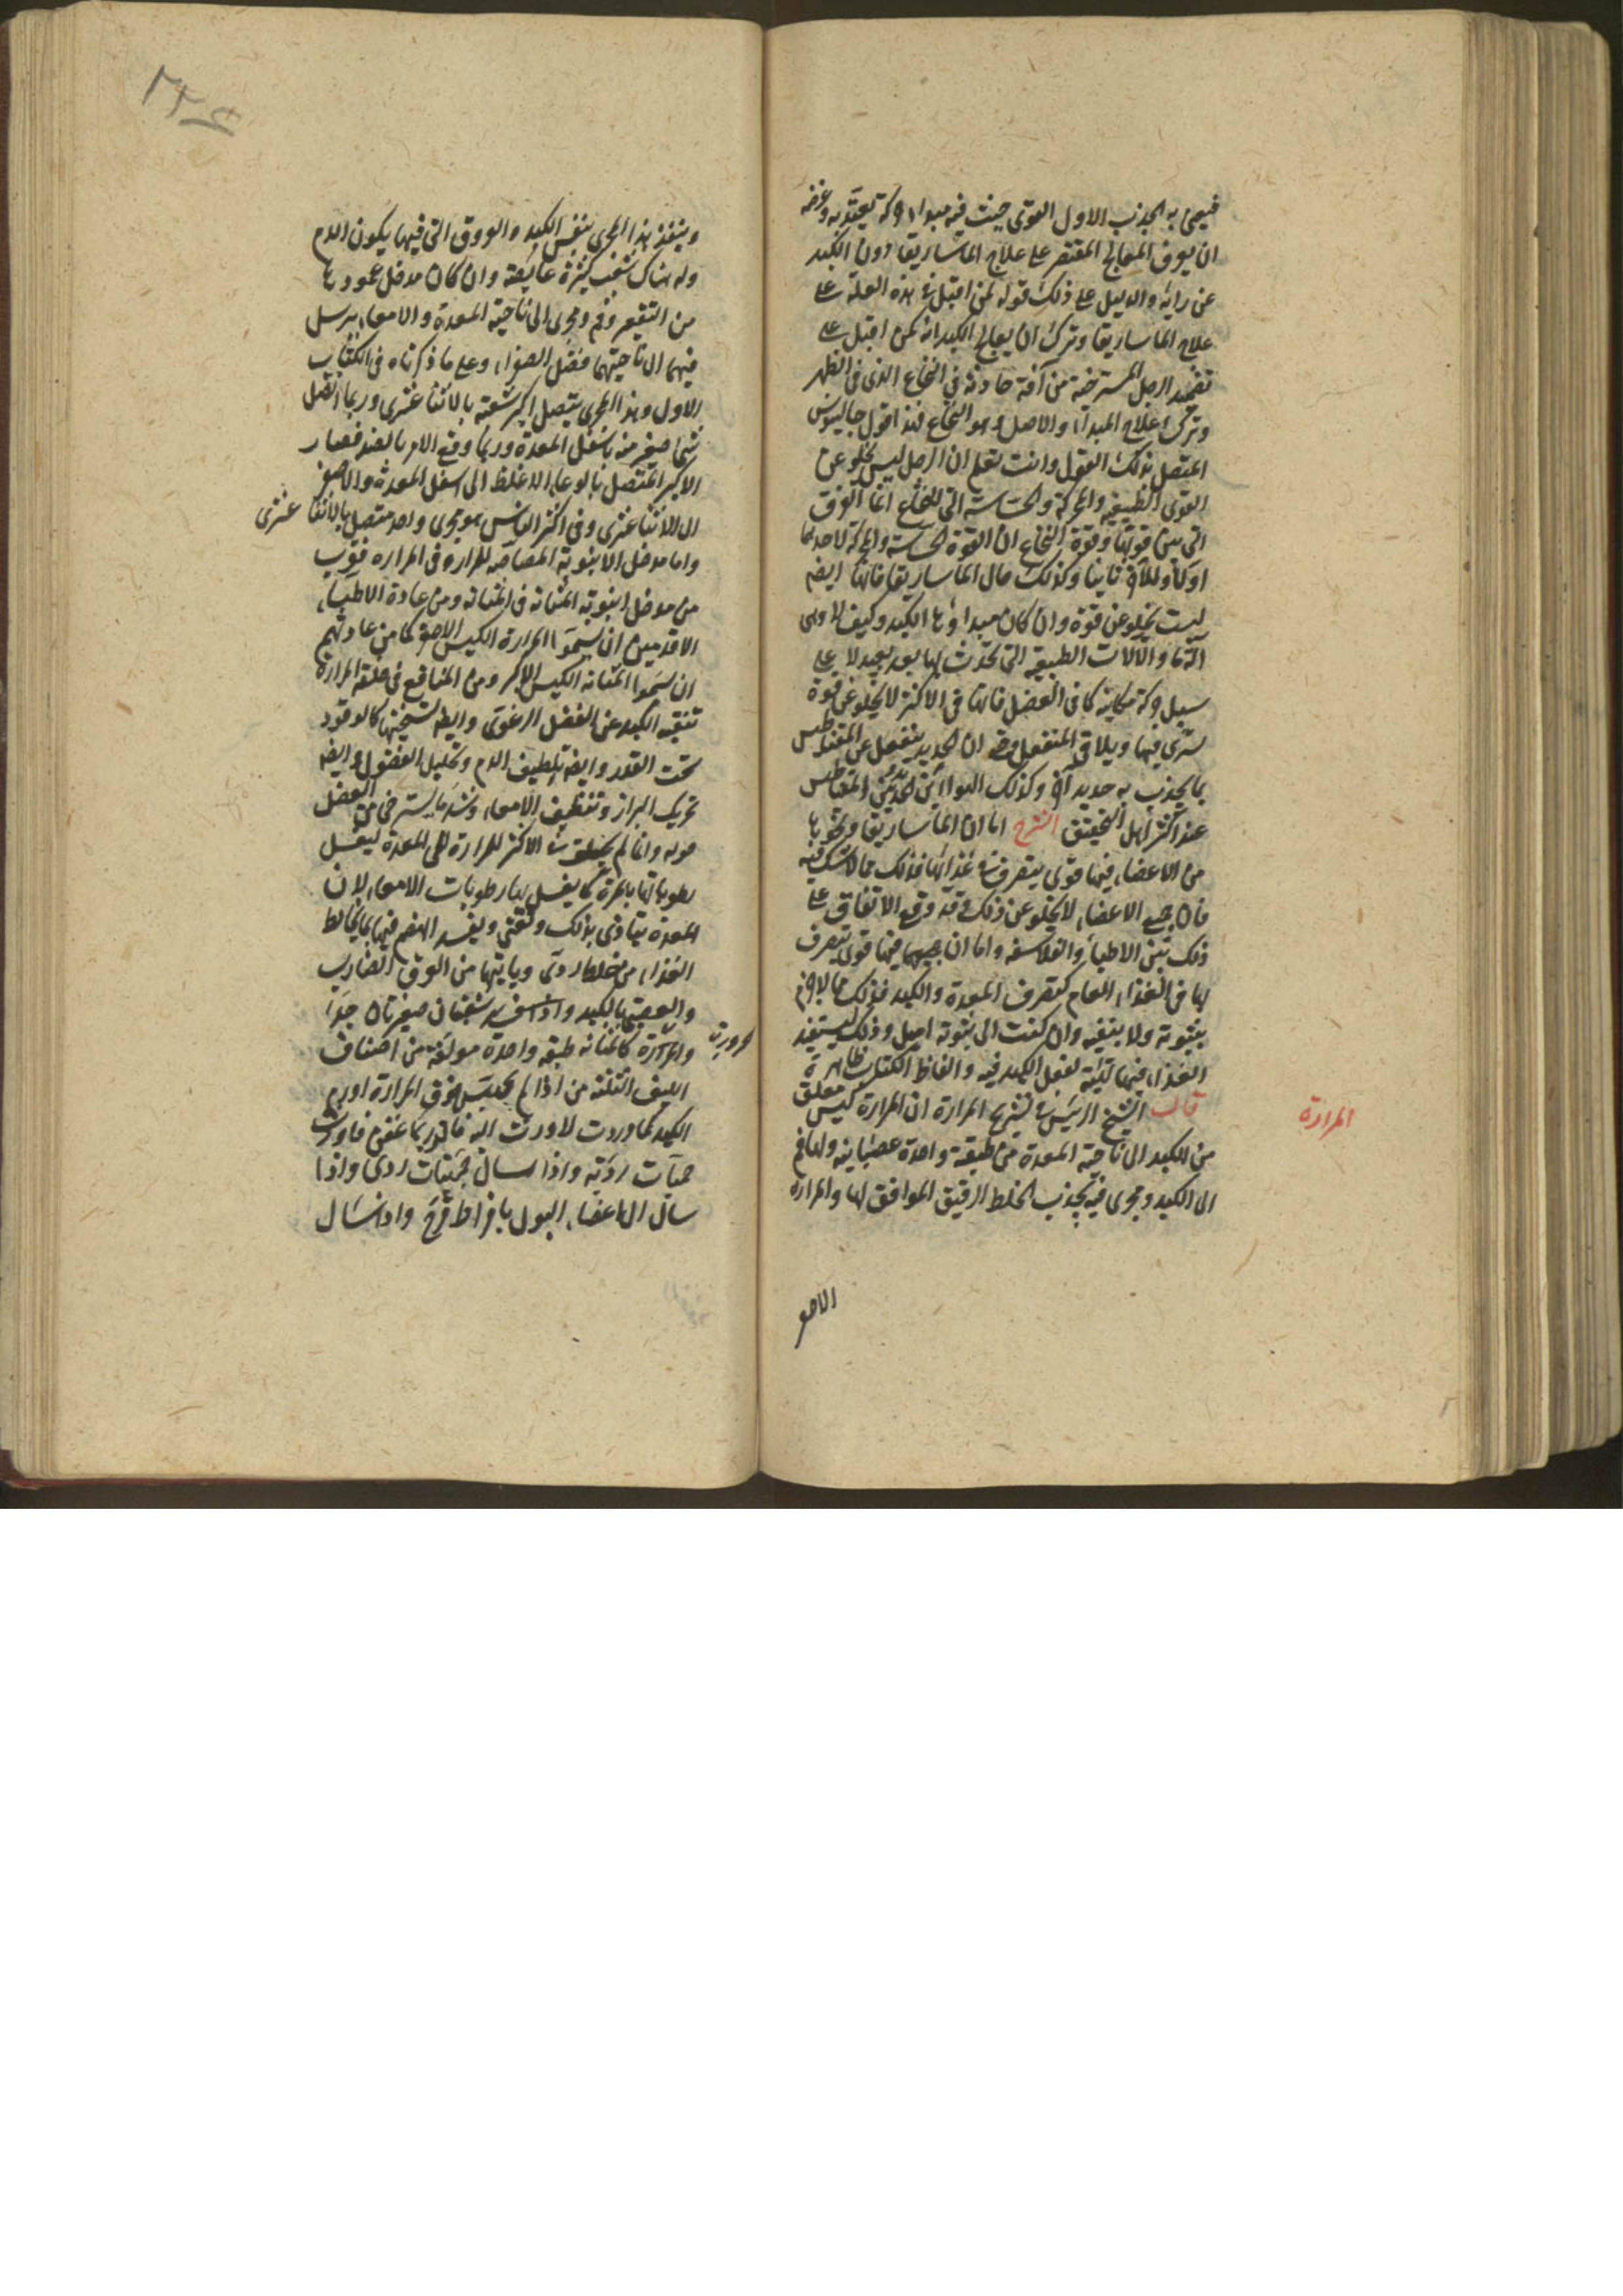 فيعين به الجذب الاول القوى حيث فيه مبدا حركة يعتد به وغرضه
ان يعرف المعالج المقتصر على علاج الماساريقا دون الكبد
عن رايه والدليل على ذلك قوله لمن اقبل فى هذه العلة على
علاج الماساريقا وترك ان يعالج الكبد انه كمن اقبل على
تضميد الرجل المسترخية من آفة حادثة فى النخاع الذى فى الظهر
وترك علاج المبدا والاصل وهو النخاع فهذا قول جالينوس
المتصل بذلك القول وانت تعلم ان الرجل ليس يخلو عن
القوى الطبيعية والمحركة والحساسة التى للنخاع انما الفرق
التى بين قوتها وقوة النخاع ان القوة الحساسة والمحركة لاحدهما
اولا وللآخر ثانيا وكذلك حال الماساريقا فانها ايضا
ليست تخلو عن قوة وان كان مبداوها الكبد وكيف لا وهى
آلة ما والآلات الطبيعية التى تجذب بها بعد بعيد لا على
سبيل حركة مكانية كما فى العضل فانها فى الاكثر لا يخلو عن قوة
تسرى فيها ويلاقى المنفعل حتى ان الحديد ينفعل عن المغناطيس
بما يجذب به حديد آخر وكذلك الهوا بين الحديد وبين المغناطيس
عند اكثر اهل التحقيق الشرح اما ان الماساريقا ونحوها
من الاعضاء فيها قوى يتصرف فى غذائها فذلك مما لا شك فيه
فان جميع الاعضاء لا يخلو عن ذلك وقد وقع الاتفاق على
ذلك بين الاطباء والفلاسفه واما ان جميعها فيها قوى يتصرف
بها فى الغذاء العام كتصرف المعدة والكبد فذلك مما لا جزم
بثبوته ولا بنفيه وان كنت الى ثبوته اميل وذلك ليستفيد
الغذاء فيها تهيئة لفعل الكبد فيه والفاظ الكتاب ظاهرة
قال الشيخ الرئيس فى تشريح المرارة ان المرارة كيس معلق
المرارة
من الكبد الى ناحية المعدة من طبقة واحدة عصبانيه ولها فم
الى الكبد ومجرى فيه يجذب الخلط الرقيق الموافق لها والمرار
الاصفر
وينفذ هذا المجرى بنفس الكبد والعروق التى فيها يكون الدم
وله هناك شعب كثيرة غايصة وان كان مدخل عمودها
من التقعير وفم ومجرى الى ناحية المعدة والامعاء يرسل
فيهما الى ناحيتهما فضل الصفراء وعلى ما ذكرناه فى الكتاب
الاول وهذا المجرى يتصل اكبر شعبه بالاثنا عشرى وربما اتصل
شى صغير منه باسفل المعدة وربما وقع الامر بالضد فصار
الاكبر المتصل بالوعاء الاغلظ الى اسفل المعدة والاصغر
الى الاثنا عشرى وفى اكثر الناس هو مجرى واحد متصل بالاثنا عشرى
واما مدخل الانبوبة المصاصة للمراره فى المراره فقريب
من مدخل انبوبة المثانه فى المثانه ومن عادة الاطباء
الاقدمين ان يسموا المرارة الكيس الاصغر كما من عادتهم
ان يسموا المثانه الكيس الاكبر ومن المنافع فى خلقة المرارة
تنقية الكبد عن الفضل الرغوى وايضا تسخينها كالوقود
تحت القدر وايضا تلطيف الدم وتحليل الفضول وايضا
تحريك البراز وتنظيف الامعاء وشد ما يسترخى من العضل
حوله وانما لم يخلق فى الاكثر للمرارة الى المعدة ليغسل
رطوباتها بالمرة كما يغسل بها رطوبات الامعاء لان
المعدة يتاذى بذلك وتغثى ويفسد الهضم فيها بما يخالط
الغذاء من خلط ردى وياتيها من العرق الضارب
والعصبة بالكبد شعبتان صغيرتان جدا
والمرارة كالمثانه طبقة واحدة مولفة من اصناف
الليف الثلثه من اذا لم يحتبس فوق المرارة او رم
الكبد حميات ردئه واذا سال
سال الى اعضاء البول بافراط قرح واذا سال